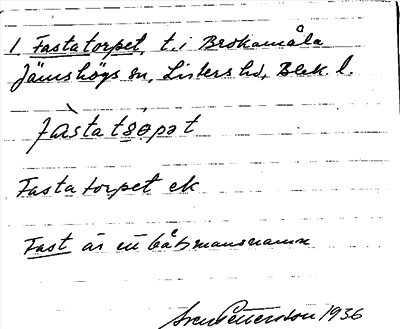 1. Fastatorpet, t. i Brokamåla
Jämshögs sn, Listers hd, Blek. l.
fàstatsǫpət
Fastatorpet ek
Fast är ett båtsmansnamn
Sven Pettersson 1936